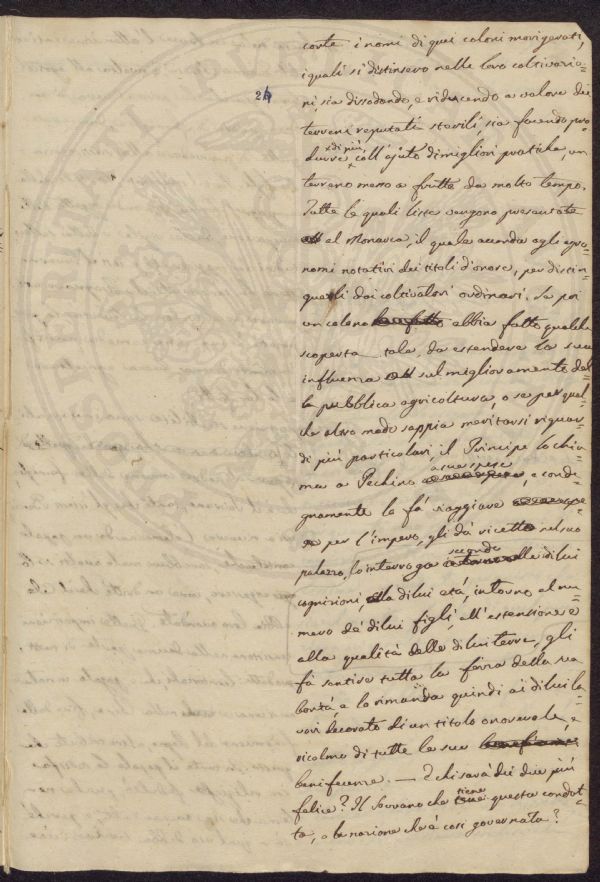 corte i nomi di quei coloni morigerati,
i quali si distinsero nelle loro coltivazio=
ni sia dissodando, e riducendo a valore dei
24
terreni reputati sterili, sia facendo pro=
di più
durre coll'ajuto di migliori pratiche, un
terreno messo a frutto da molto tempo.
Tutte le quali liste vengono presentate
al Monarca, il quale accorda agli agro=
nomi notativi dei titoli d'onore, per distin=
guerli dai coltivatori ordinarj. Se poi
un colono abbia fatto qualche
scoperta tale, da estendere la sua
influenza sul miglioramento del=
la pubblica agricoltura, o se per qual=
che altro modo sappia meritarsi riguar=
di più particolari, il Principe lo chia=
a sue spese
ma a Pechino, e conde=
gnamente lo fà viaggiare
per l'impero, gli dà ricetto nel suo
palazzo, lo interroga
secondo
le di lui
cognizioni, la di lui età, intorno al nu=
mero de' di lui figli, all'estensione e
alla qualità delle di lui terre, gli
fà sentire tutta la forza della sua
bontà, e lo rimanda quindi ai di lui la=
vori decorato di un titolo onorevole, e
ricolmo di tutte le sue
beneficenze. — E chi sarà dei due più
felice? Il Sovrano che
tiene
questa condot=
ta, o la nazione che è così governata?